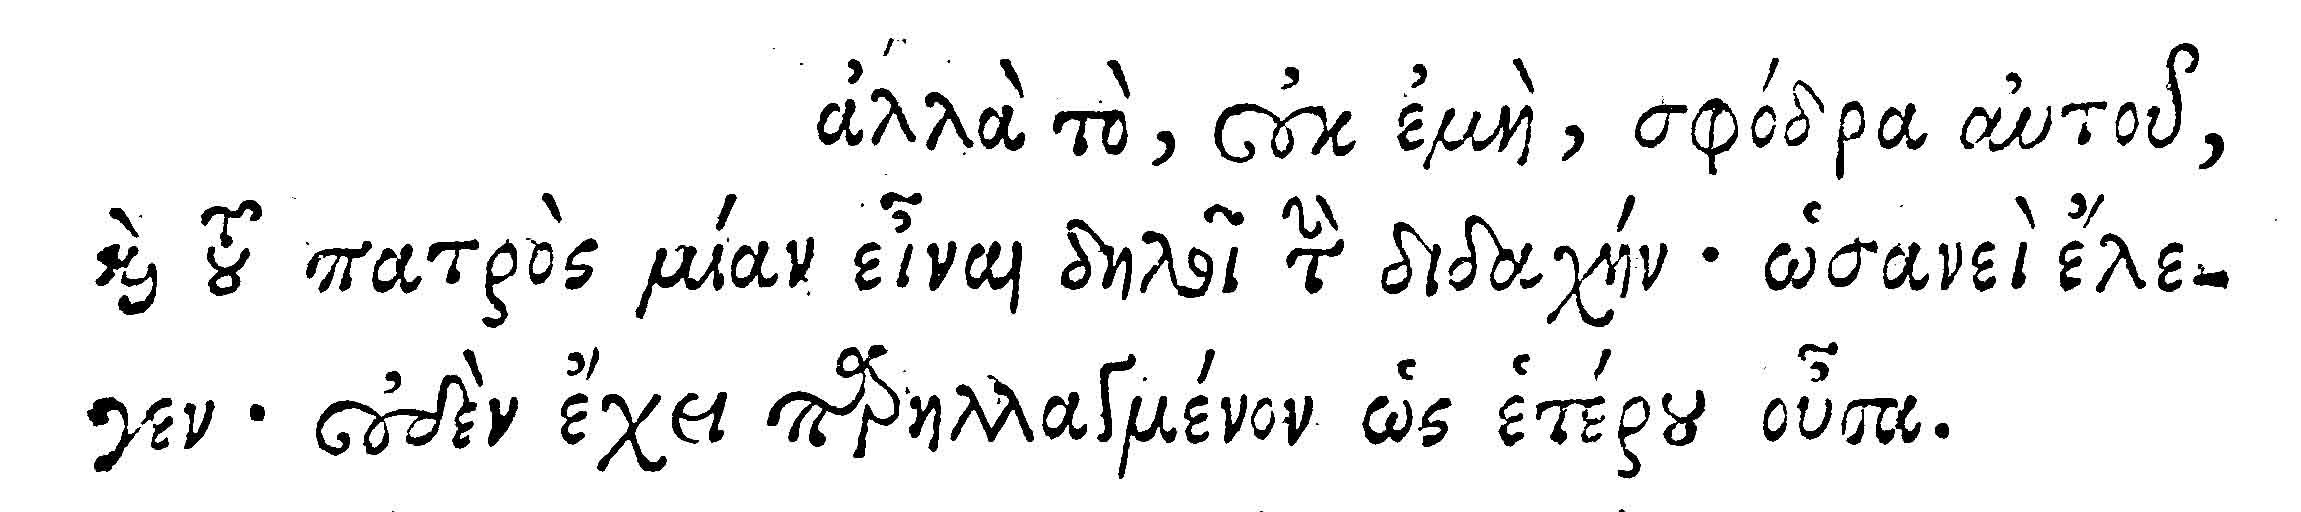 ἀλλὰ τὸ, οὐκ ἐμὴ, σφόδρα αὐτοῦ,
καὶ τοῦ πατρὸς μίαν εἶναι δηλοῖ τὴν διδαχήν· ὡσανεὶ ἔλε-
γεν· οὐδὲν ἔχει παρηλλαγμένον ὡς ἑτέρου οὖσα.